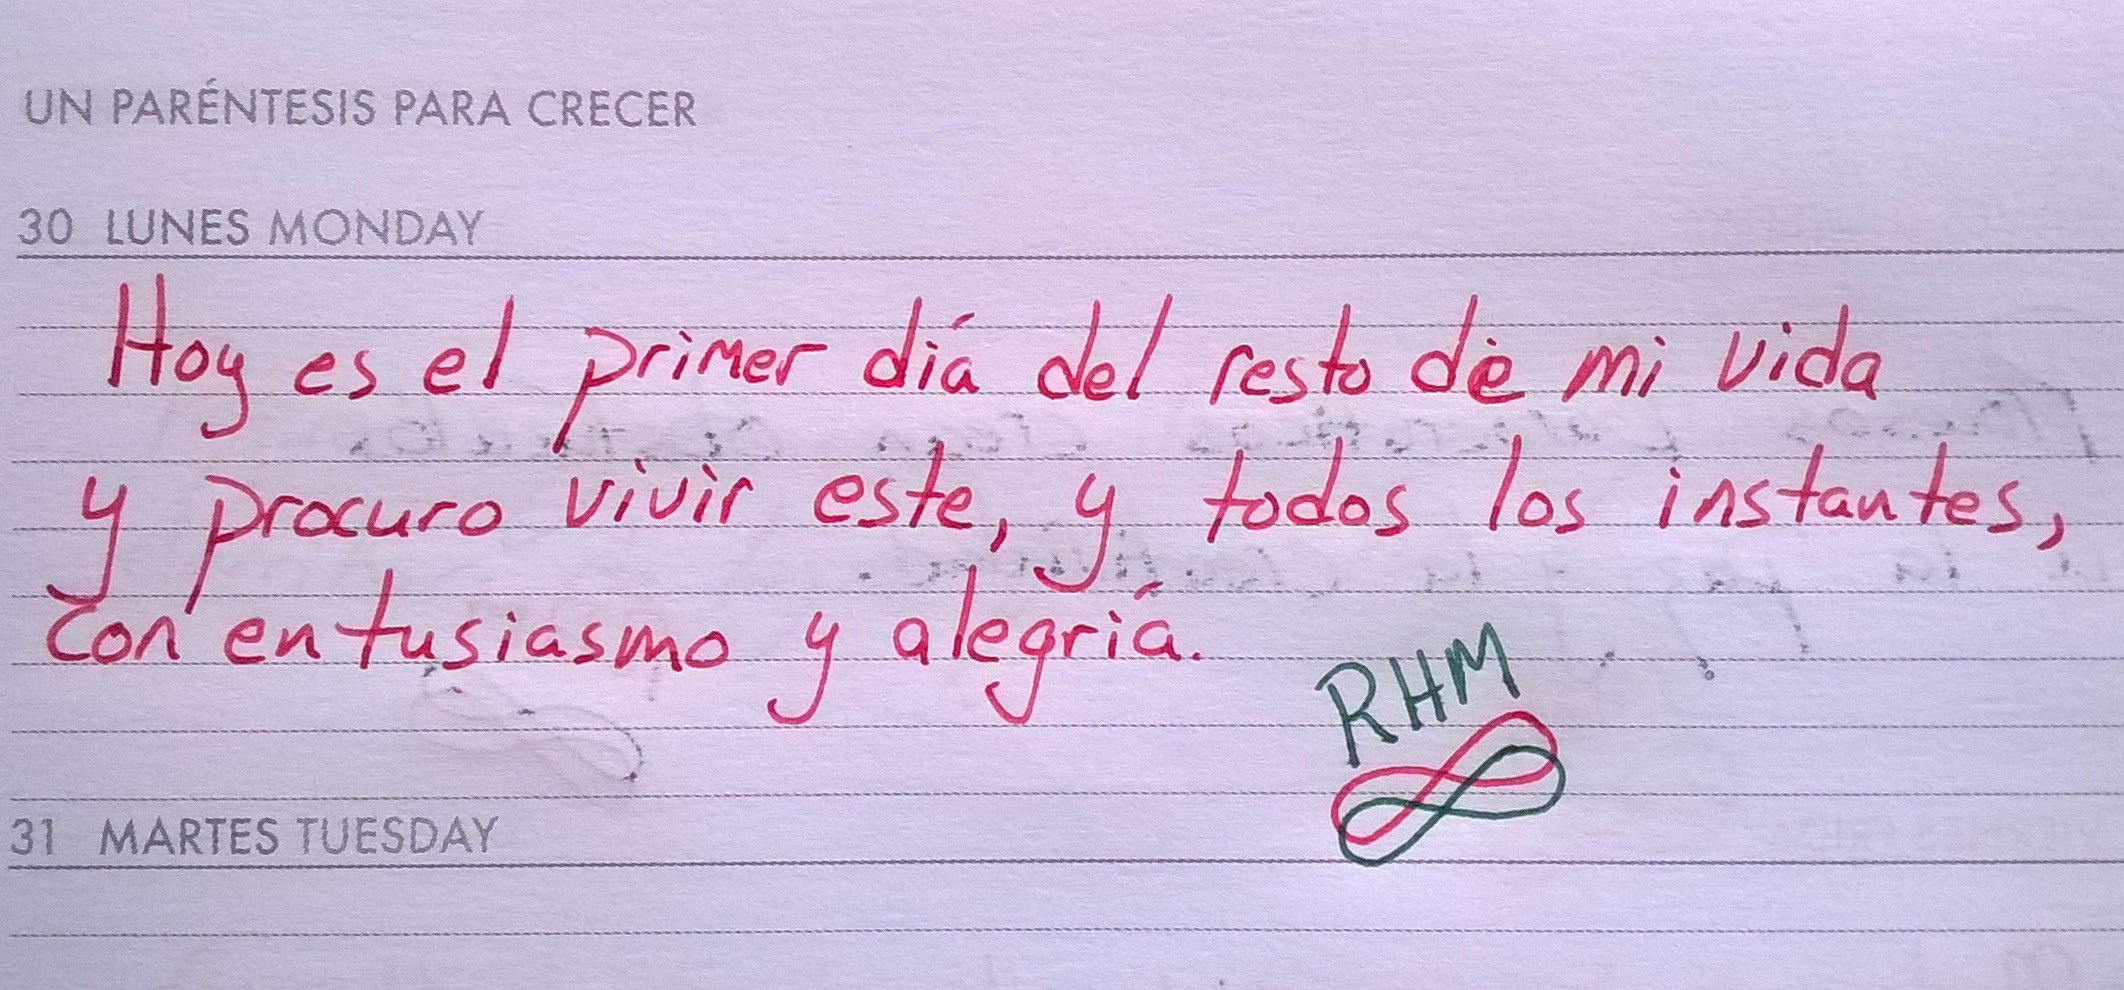 UN PARÉNTESIS PARA CRECER
30 LUNES MONDAY
Hoy es el primer día del resto de mi vida
y procuro vivir este, y todos los instantes,
con entusiasmo y alegría.
RHM
31 MARTES TUESDAY